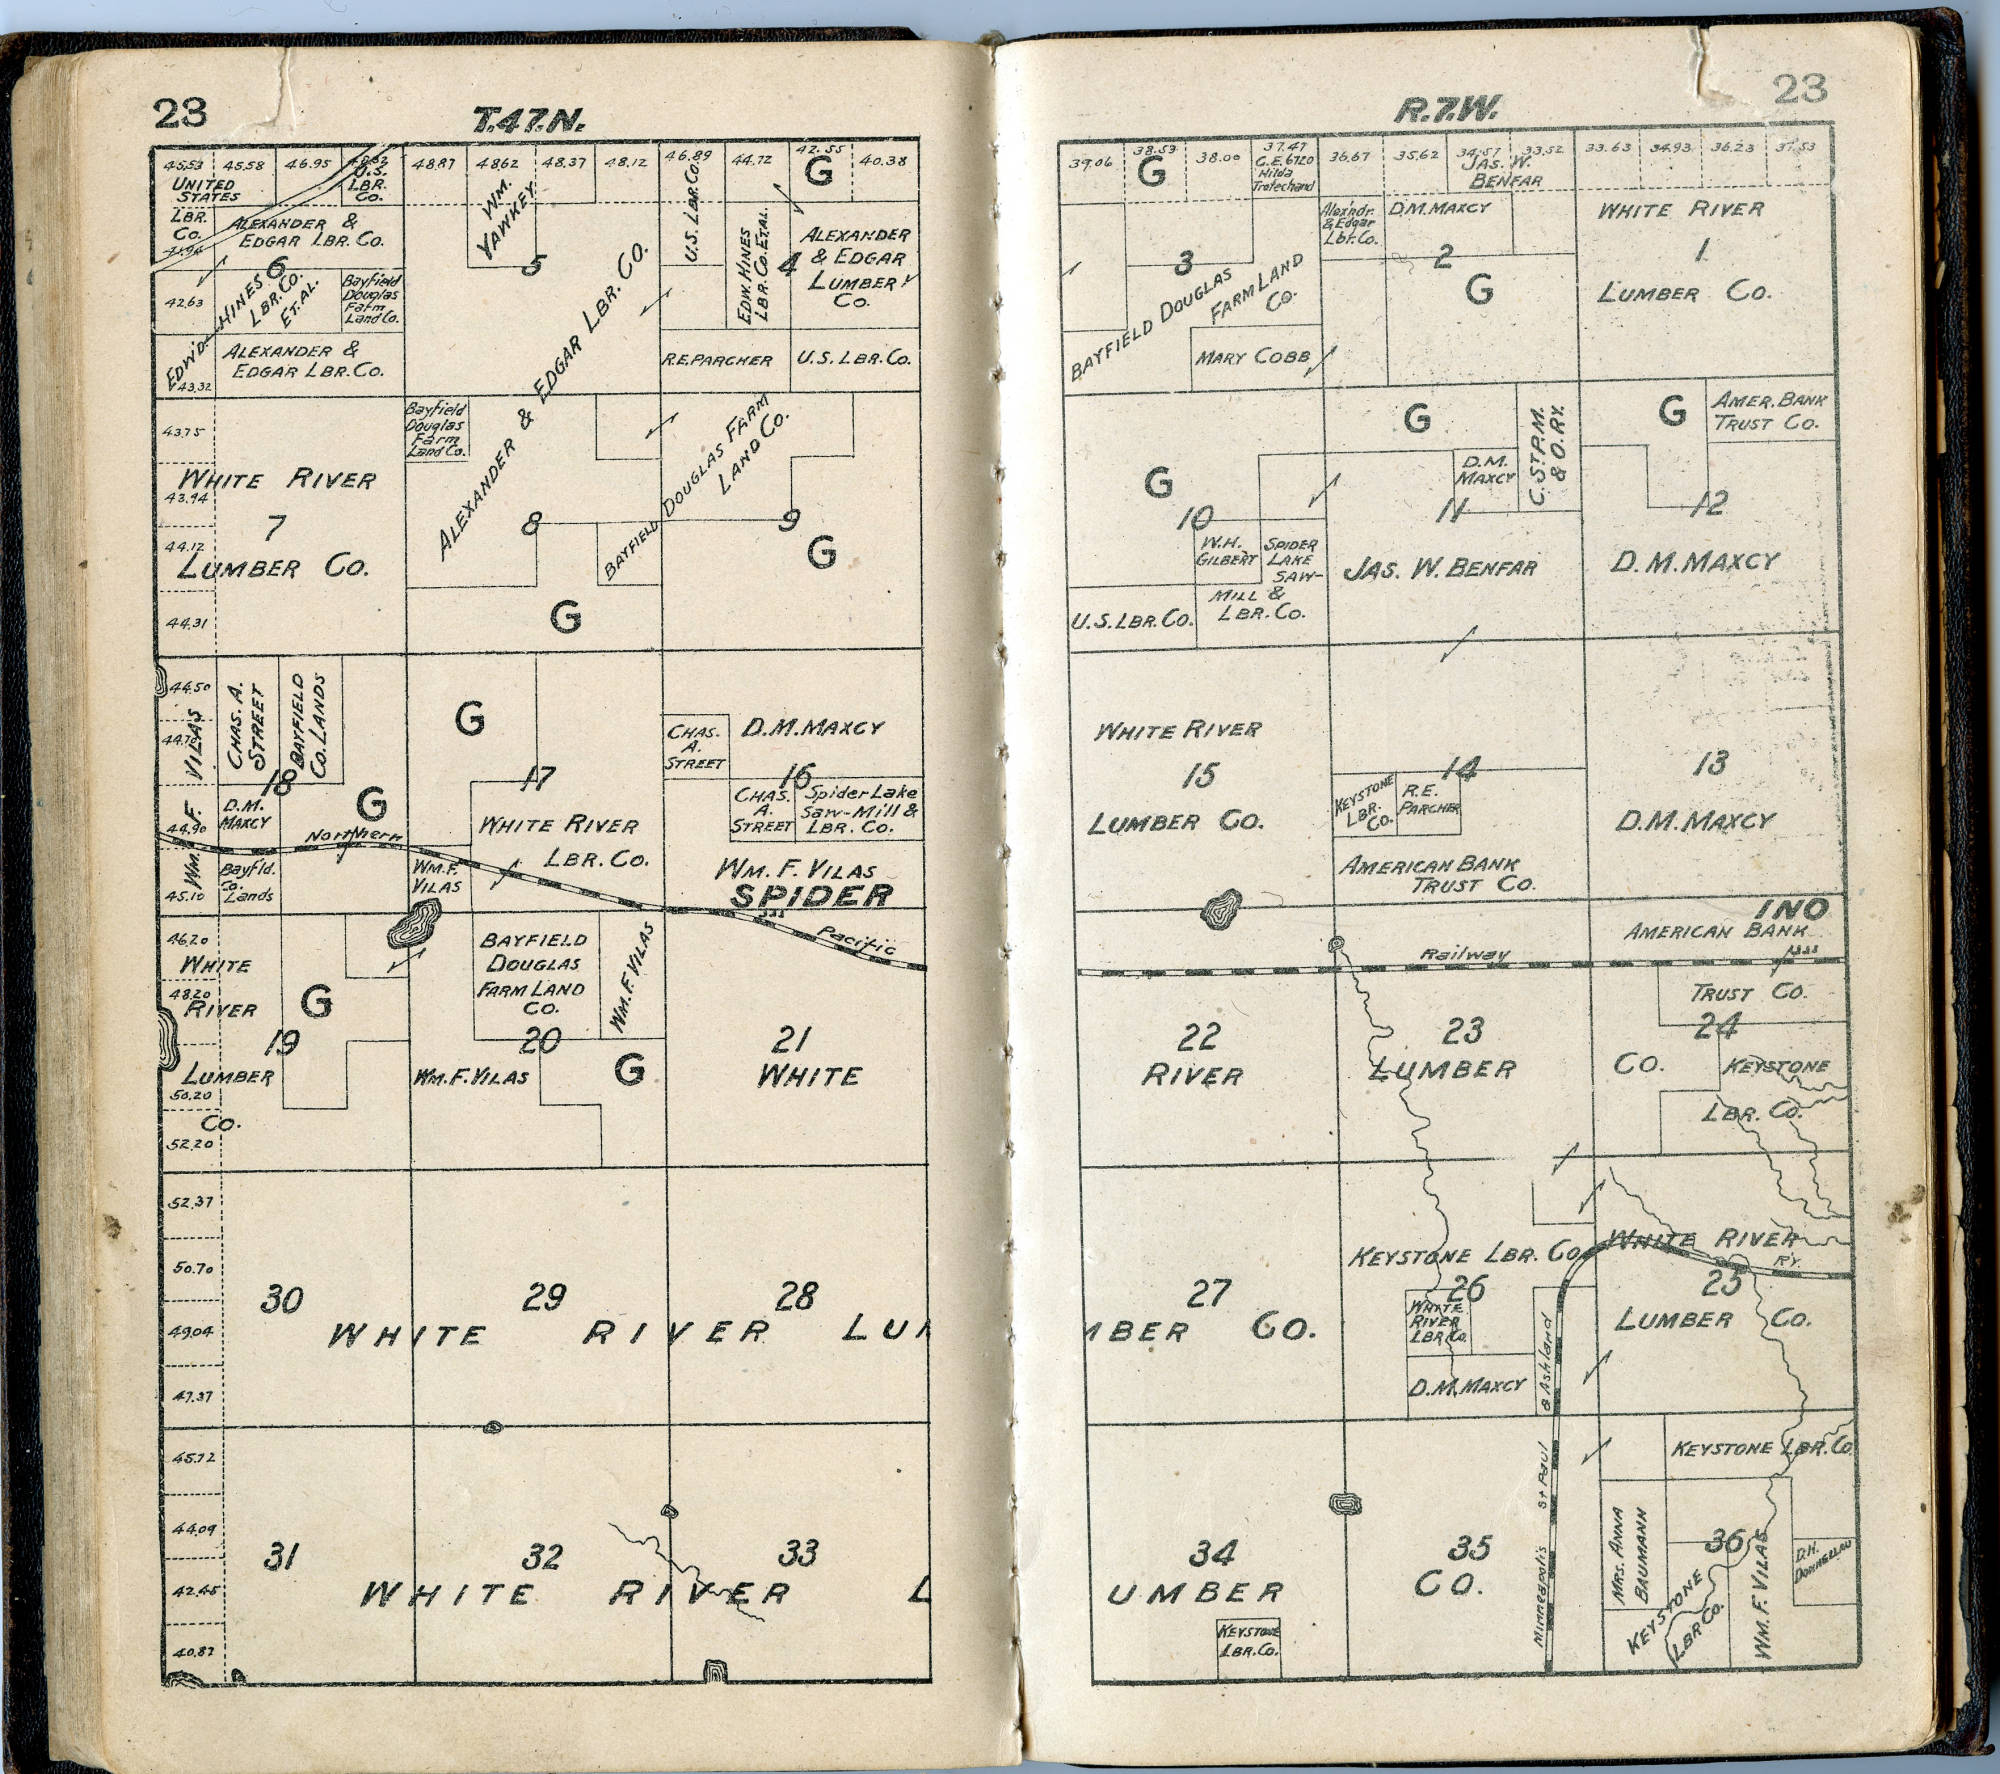 23
T.47.N.
45.53 45.58 46.95 48.87 48.62 48.37 48.12 46.89 44.72 42.55 40.38
UNITED
STATES
LBR.
CO.
U.S.
LBR.
CO.
ALEXANDER &
EDGAR LBR. CO.
6
42.63
EDW'D. HINES
LBR. CO.
ET. AL.
Bayfield
Douglas
Farm
Land Co.
ALEXANDER &
EDGAR LBR. CO.
43.32
WM.
YAWKEY
5
ALEXANDER & EDGAR LBR. CO.
U.S. LBR. CO.
EDW. HINES
LBR. CO. ET AL.
G
4
ALEXANDER
& EDGAR
LUMBER
CO.
R.E. PARCHER
U.S. LBR. CO.
43.75
WHITE RIVER
43.94
7
44.12
LUMBER CO.
44.31
Bayfield
Douglas
Farm
Land Co.
8
G
BAYFIELD DOUGLAS FARM
LAND CO.
9
G
44.50
44.70
44.90
45.10
WM. F. VILAS
CHAS. A.
STREET
BAYFIELD
CO. LANDS
18
D.M.
MAXCY
G
Northern
Bayfld.
Co.
Lands
G
17
WHITE RIVER
LBR. CO.
WM. F.
VILAS
CHAS.
A.
STREET
D.M. MAXCY
16
CHAS.
A.
STREET
Spider Lake
Saw-Mill &
LBR. CO.
WM. F. VILAS
SPIDER
Pacific
46.20
WHITE
48.20
RIVER
G
19
LUMBER
50.20
CO.
52.20
BAYFIELD
DOUGLAS
FARM LAND
CO.
WM. F. VILAS
20
WM. F. VILAS
G
21
WHITE
52.37
50.70
30 29 28
49.04
WHITE RIVER LUM
47.37
45.72
44.09
31 32 33
42.45
WHITE RIVER L
40.87
23
R.7.W.
39.06 38.53 38.00 37.47 36.67 35.62 34.57 33.52 33.63 34.93 36.23 37.53
G
C.E. 6720
Hilda
Trotechand
3
BAYFIELD DOUGLAS
FARM LAND
CO.
MARY COBB
JAS. W.
BENFAR
Alex'ndr.
& Edgar
Lbr. Co.
D.M. MAXCY
2
G
WHITE RIVER
1
LUMBER CO.
G
10
W.H.
GILBERT
SPIDER
LAKE
SAW-
MILL &
LBR. CO.
U.S. LBR. CO.
G
D.M.
MAXCY
C. ST. P. M.
& O. RY.
11
JAS. W. BENFAR
G
AMER. BANK
TRUST CO.
12
D.M. MAXCY
WHITE RIVER
15
LUMBER CO.
14
KEYSTONE
LBR.
CO.
R.E.
PARCHER
AMERICAN BANK
TRUST CO.
13
D.M. MAXCY
INO
AMERICAN BANK
Railway
TRUST CO.
22 23 24
RIVER LUMBER CO.
KEYSTONE
LBR. CO.
KEYSTONE LBR. CO.
WHITE RIVER
RY.
27 26 25
WHITE
RIVER
LBR. CO.
MBER CO.
LUMBER CO.
D.M. MAXCY
Minneapolis St Paul & Ashland
KEYSTONE LBR. CO.
MRS. ANNA
BAUMANN
34 35 36
UMBER CO.
KEYSTONE
LBR. CO.
KEYSTONE
LBR CO.
WM. F. VILAS
D.H.